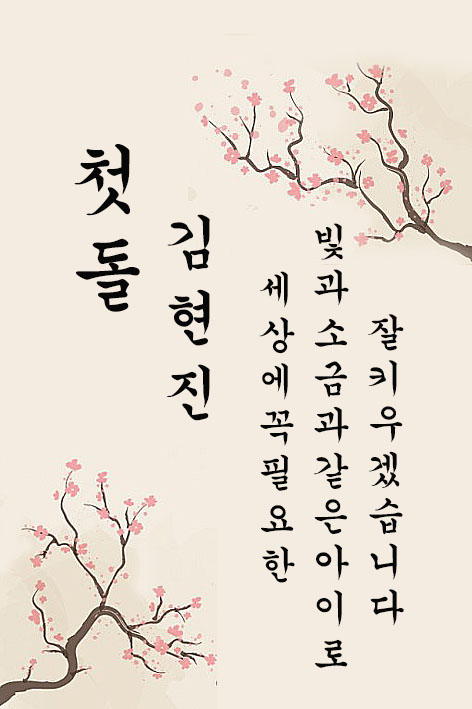 첫돌
김현진
세상에꼭필요한
빛과소금과같은아이로
잘키우겠습니다